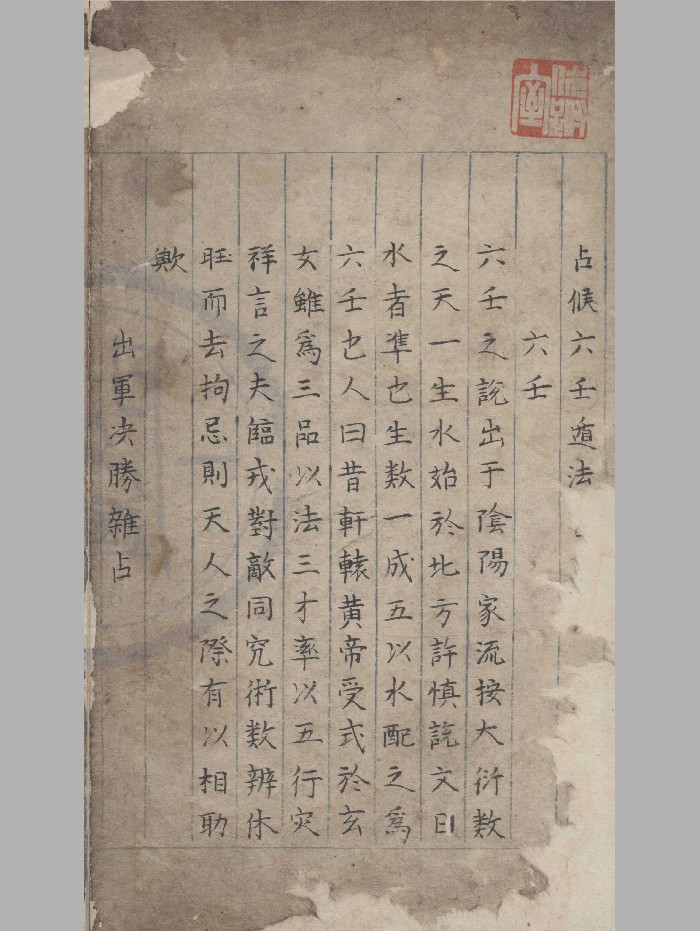 占候六壬遁法
六壬
六壬之說出于陰陽家流按大衍數
之天一生水始於北方許慎說文曰
水者準也生数一成五以水配之爲
六壬也人曰昔軒轅黄帝受式於玄
女雖爲三品以法三才率以五行灾
祥言之夫臨戎對敵同究術数辨休
旺而去拘忌則天人之際有以相助
歟
出軍决勝雜占